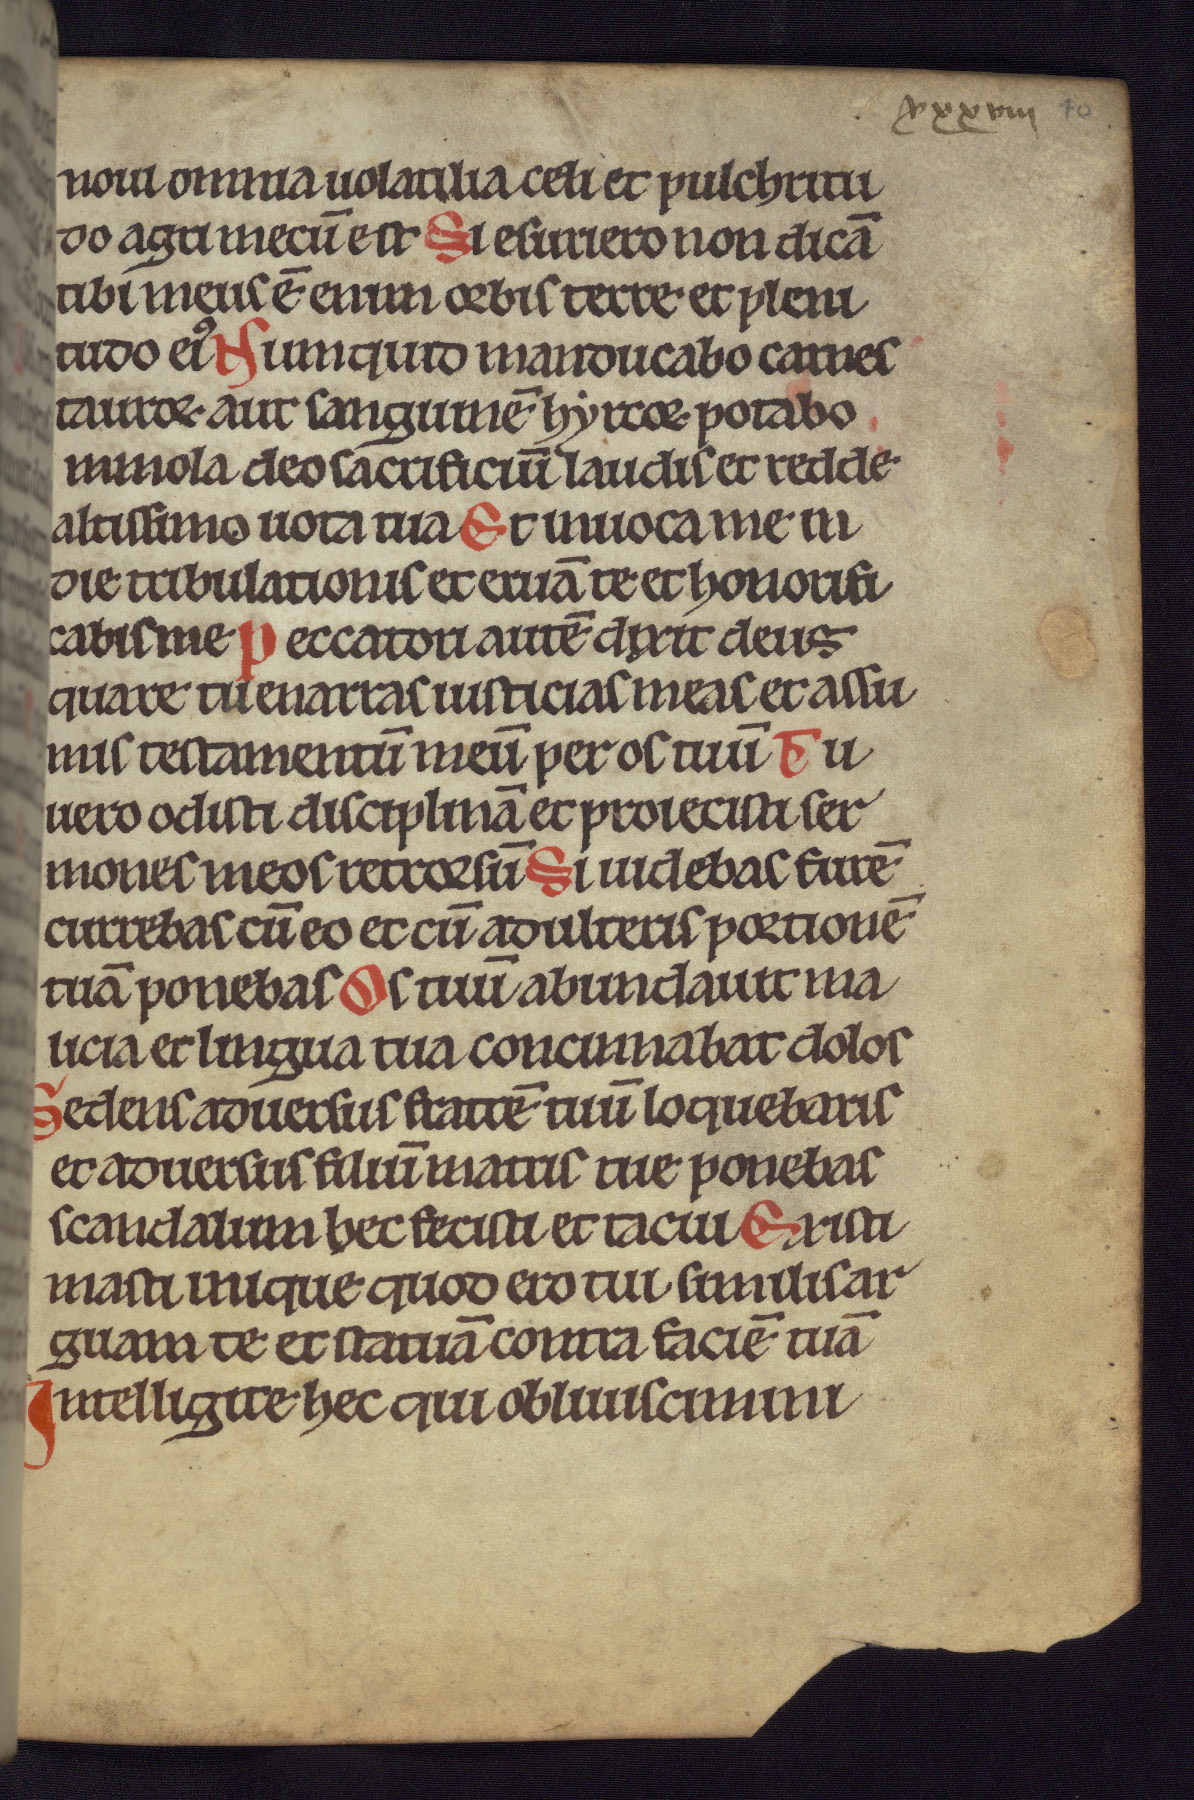 xxxviii 40
noui omnia uolatilia celi et pulchritu
do agri mecū est Si esuriero non dicā
tibi meus ē enim orbis terre et pleni
tudo eiꝰ Numquid manducabo carnes
tauroꝝ aut sanguinē hyrcoꝝ potabo
Immola deo sacrificiū laudis et redde
altissimo uota tua Et inuoca me in
die tribulationis et eruā te et honorifi
cabis me Peccatori autē dixit deus
quare tu enarras iusticias meas et assu
mis testamentū meū per os tuū Tu
uero odisti disciplinā et proiecisti ser
mones meos retrorsū Si uidebas furē
currebas cū eo et cū adulteris portionē
tuā ponebas Os tuū abundauit ma
licia et lingua tua concinnabat dolos
Sedens aduersus fratrē tuū loquebaris
et aduersus filiū matris tue ponebas
scandalum hec fecisti et tacui Existi
masti inique quod ero tui similis ar
guam te et statuā contra faciē tuā
Intelligite hec qui obliuiscimini